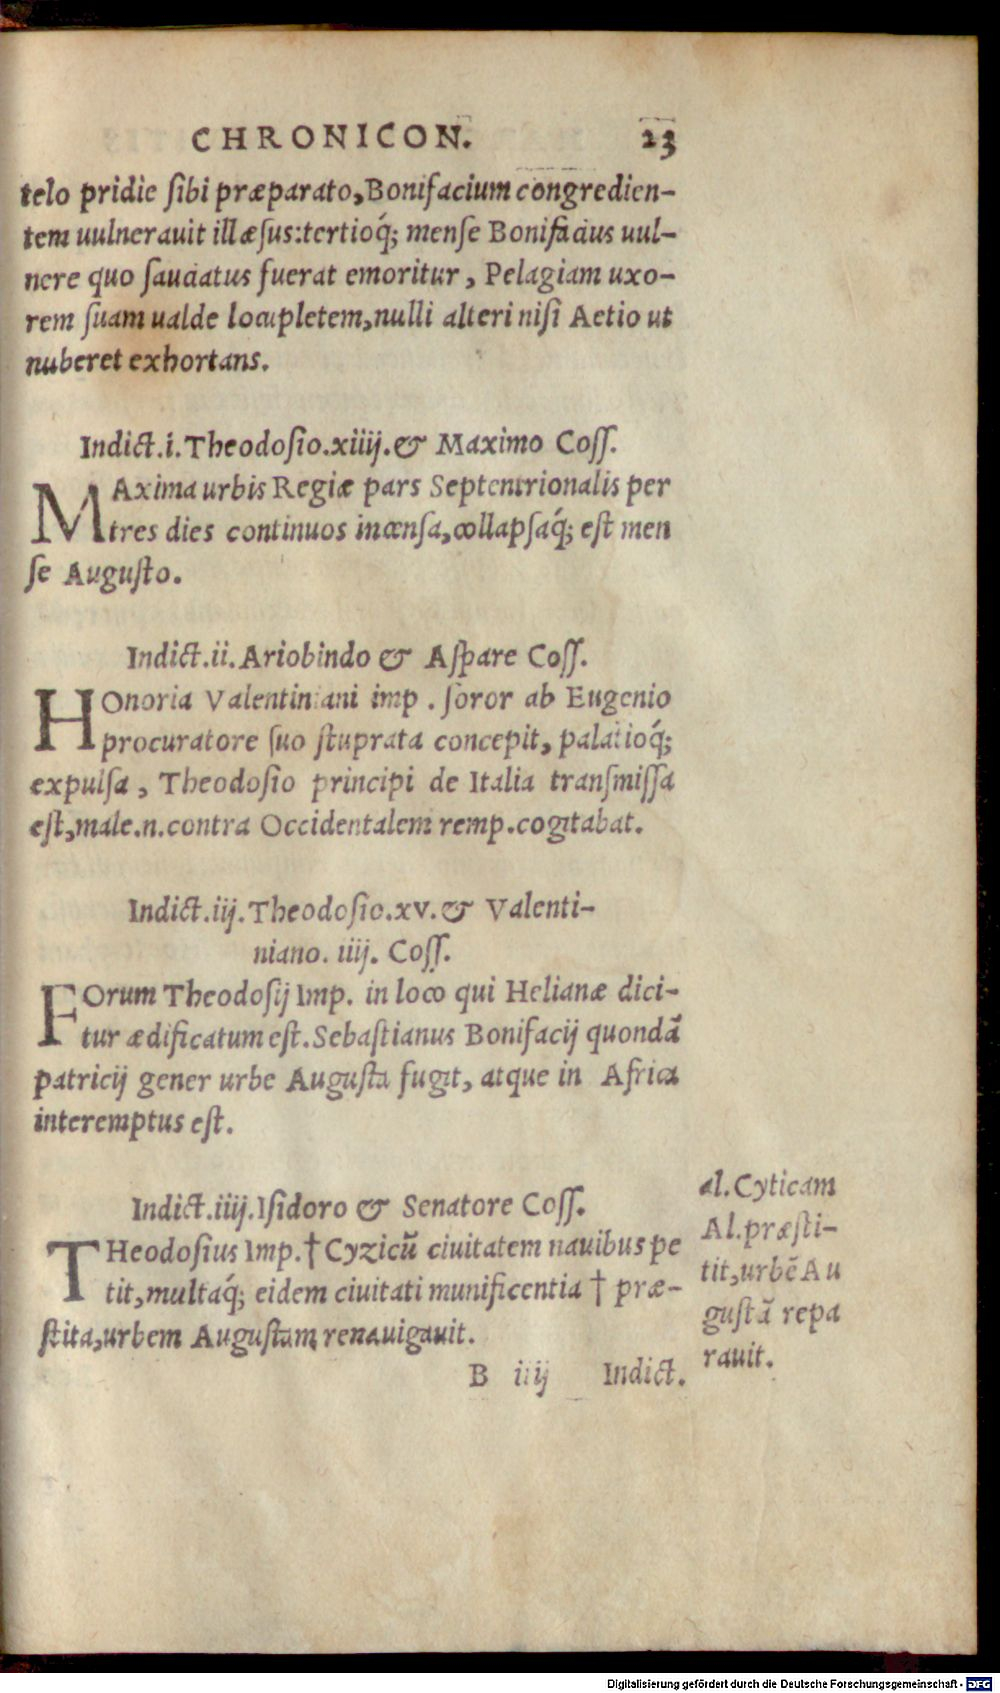 CHRONICON. 23
telo pridie ſibi præparato, Bonifacium congredien-
tem uulnerauit illæſus: tertioq́; menſe Bonifacius uul-
nere quo ſauciatus fuerat emoritur, Pelagiam uxo-
rem ſuam ualde locupletem, nulli alteri niſi Aetio ut
nuberet exhortans.
Indict.i. Theodoſio.xiiij. & Maximo Coſſ.
MAxima urbis Regiæ pars Septentrionalis per
tres dies continuos incenſa, collapſaq́; eſt men
ſe Auguſto.
Indict.ii. Ariobindo & Aſpare Coſſ.
HOnoria Valentiniani imp. ſoror ab Eugenio
procuratore ſuo ſtuprata concepit, palatioq́;
expulſa, Theodoſio principi de Italia tranſmiſſa
eſt, male.n.contra Occidentalem remp.cogitabat.
Indict.iij. Theodoſio.xv. & Valenti-
niano. iiij. Coſſ.
FOrum Theodoſij Imp. in loco qui Helianæ dici-
tur ædificatum eſt. Sebaſtianus Bonifacij quondã
patricij gener urbe Auguſta fugit, atque in Africa
interemptus eſt.
Indict.iiij. Iſidoro & Senatore Coſſ.
THeodoſius Imp. † Cyzicũ ciuitatem nauibus pe
tit, multaq́; eidem ciuitati munificentia † præ-
ſtita, urbem Auguſtam renauigauit.
al. Cyticam
Al. præſti-
tit, urbẽ Au
guſtã repa
rauit.
B iiij Indict.
Digitalisierung gefördert durch die Deutsche Forschungsgemeinschaft - DFG